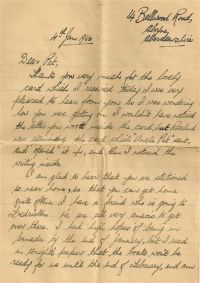 14 Bellwood Road,
Aberdeenshire
4th Jan 1946
Dear Pat,
Thanks you very much for the lovely
card which I received today. I was very
pleased to hear from you as I was wondering
how you were getting on. I wouldn't have noticed
the letter you wrote inside the card, but
was admiring the card which "Uncle Pat" sent,
and opened it up, and then I noticed the
writing inside.
I am glad to hear that you are stationed
so near home so that you can get home
quite often. I have a friend who is going to
Fredericton. We are all very anxious to get
over there. I had high hopes of being in
Canada by the end of January, but I read
in tonight's papers that the boats won't be
ready for us until the end of February, and